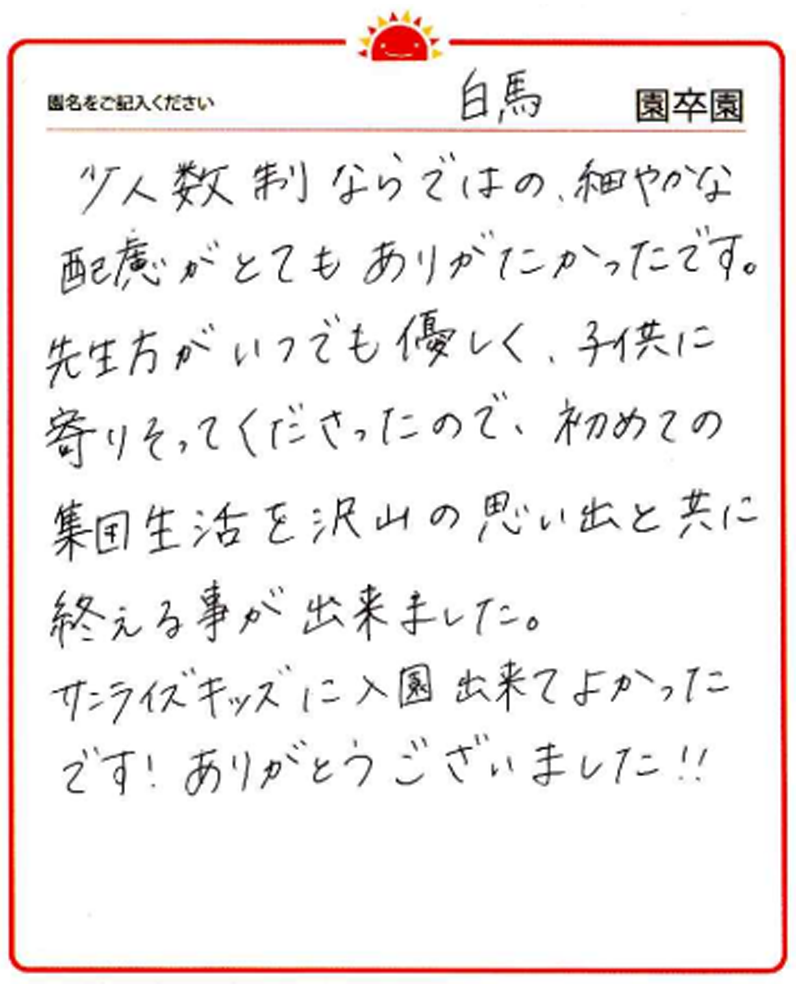 園名をご記入ください 白馬 園卒園
少人数制ならではの、細やかな
配慮がとてもありがたかったです。
先生方がいつでも優しく、子供に
寄りそってくださったので、初めての
集団生活を沢山の思い出と共に
終える事が出来ました。
サンライズキッズに入園出来てよかった
です!ありがとうございました!!